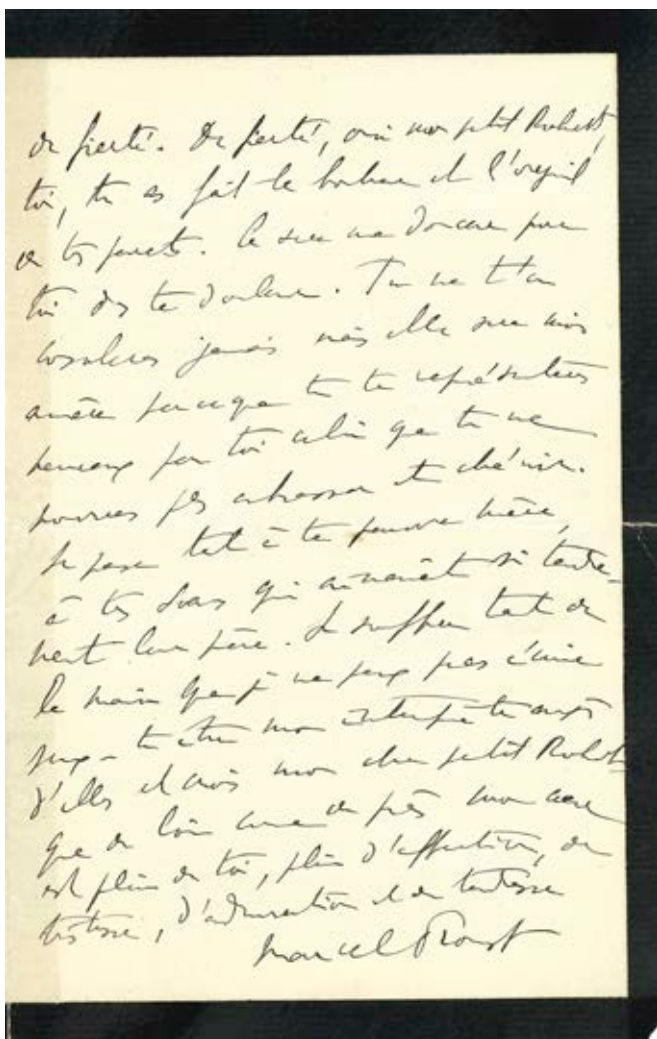 de fierté. De fierté, oui mon petit Robert,
toi, tu as fait le bonheur et l'orgueil
de tes parents. Ce sera une douceur pour
toi dans ta douleur. Tu ne t'en
consoleras jamais mais elle sera moins
amère parce que tu te représenteras
heureux par toi celui que tu ne
pourras plus embrasser et chérir.
Je pense tant à ta pauvre mère,
à tes sœurs qui aimaient si tendre-
ment leur père. Je souffre tant de
la main que je ne peux pas écrire
peux-tu être mon interprète auprès
d'elles et crois mon cher petit Robert
que de loin comme de près mon cœur
est plein de toi, plein d'affection, de
tristesse, d'admiration et de tendresse
Marcel Proust